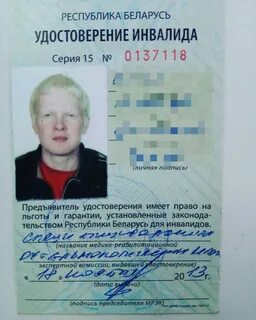 РЕСПУБЛИКА БЕЛАРУСЬ
УДОСТОВЕРЕНИЕ ИНВАЛИДА
Серия 15 № 0137118
(личная подпись)
Предъявитель удостоверения имеет право на
льготы и гарантии, установленные законода-
тельством Республики Беларусь для инвалидов.
(название медико-реабилитационной
экспертной комиссии, выдавшей удостоверение)
18 2013
(подпись председателя МРЭК)